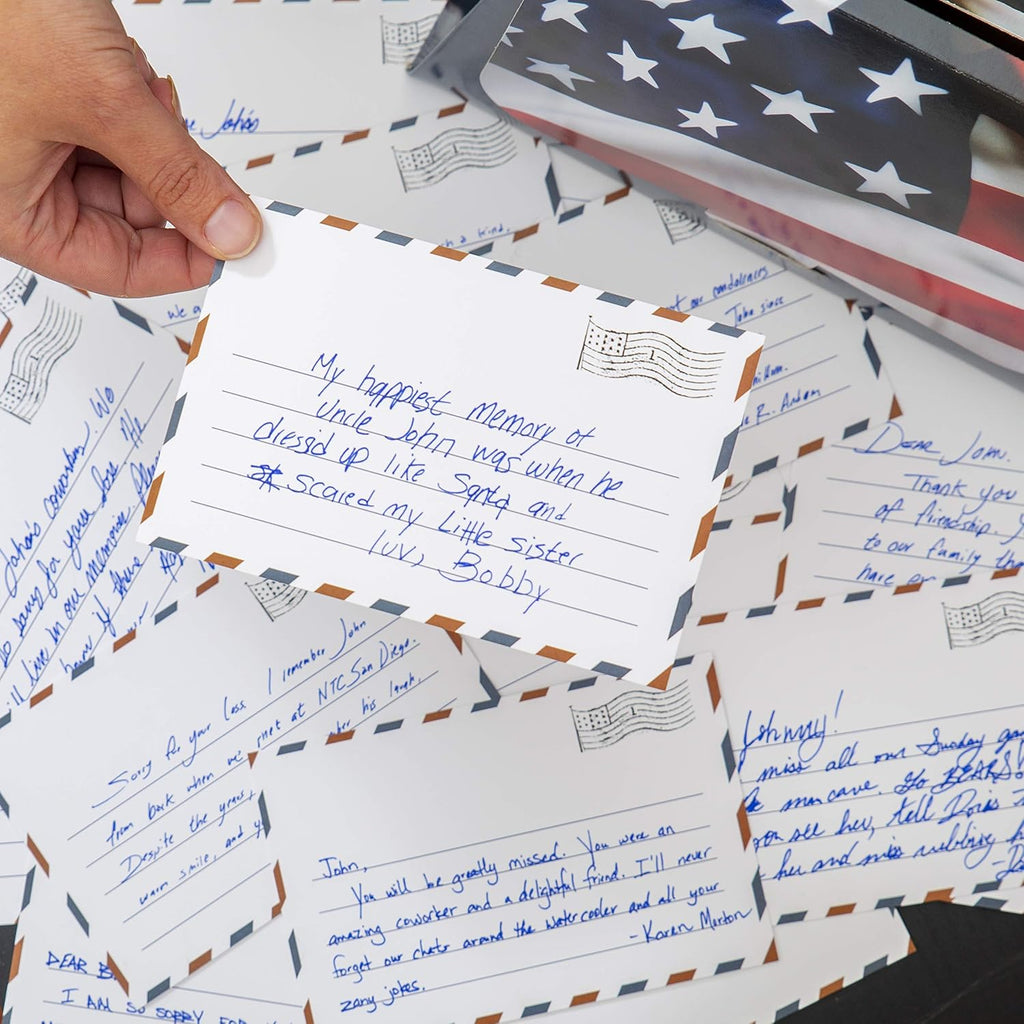 John's
h a kind.
We
our condolences
John since
R.
My happiest memory of
Uncle John was when he
dress'd up like Santa and
scared my Little sister
luv, Bobby
1
DEAR JOHN.
Thank you
of friendship.
to our family
have
John's coworker. We
so sorry for your loss. He
live in our memories.
if there
Sorry for your loss. I remember John
from back when we met at NTC San Diego.
Despite the years, his laugh,
warm smile, and
Johnny!
miss all our Sunday
man cave. Go BEARS!
you see her, tell Doris
her and miss rubbing
1
John,
You will be greatly missed. You were an
amazing coworker and a delightful friend. I'll never
forget our chats around the watercooler and all your
zany jokes.
-Karen Morton
DEAR
I AM SO SORRY FOR